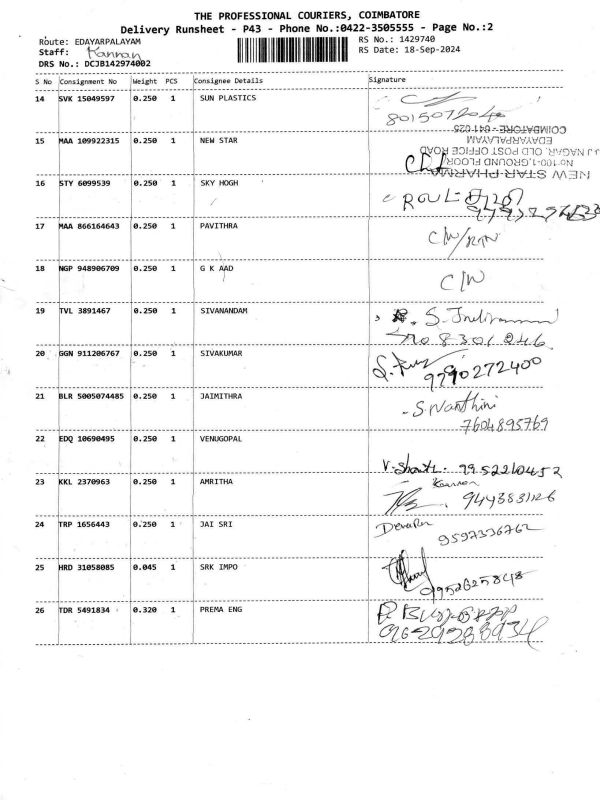 THE PROFESSIONAL COURIERS, COIMBATORE
Delivery Runsheet - P43 - Phone No.:0422-3505555 - Page No.:2
Route: EDAYARPALAYAM
RS No.: 1429740
Staff: Kannan
RS Date: 18-Sep-2024
DRS No.: DCJB142974002
S No Consignment No Weight PCS Consignee Details Signature
14 SVK 15049597 0.250 1 SUN PLASTICS
COIMBATORE - 641 025
EDAYARPALAYAM
J.J NAGAR, OLD POST OFFICE ROAD
No:100-1, GROUND FLOOR
NEW STAR PHARMA
15 MAA 109922315 0.250 1 NEW STAR
16 STY 6099539 0.250 1 SKY HOGH
17 MAA 866164643 0.250 1 PAVITHRA
C/W/RTN
18 NGP 948906709 0.250 1 G K AAD
C/W
19 TVL 3891467 0.250 1 SIVANANDAM
20 GGN 911206767 0.250 1 SIVAKUMAR
9790272400
21 BLR 5005074485 0.250 1 JAIMITHRA
S. Nanthini
7604895769
22 EDQ 10690495 0.250 1 VENUGOPAL
9952210452
23 KKL 2370963 0.250 1 AMRITHA
Kannan
24 TRP 1656443 0.250 1 JAI SRI
9597336762
25 HRD 31058085 0.045 1 SRK IMPO
9952625848
26 TDR 5491834 0.320 1 PREMA ENG